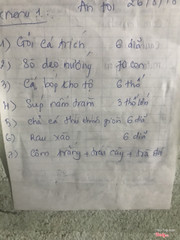 Menu 1: Ăn tối 26/8/18
1) Gỏi cá trích 6 dĩa
2) Sò dẹo nướng 70 con
3) Cá bớp kho tộ 6 thố
4) Súp nấm tràm 3 thố lớn
5) chả cá thu chiên giòn 6 dĩa
6) Rau xào 6 dĩa
7) Cơm trắng + trái cây + trà đá